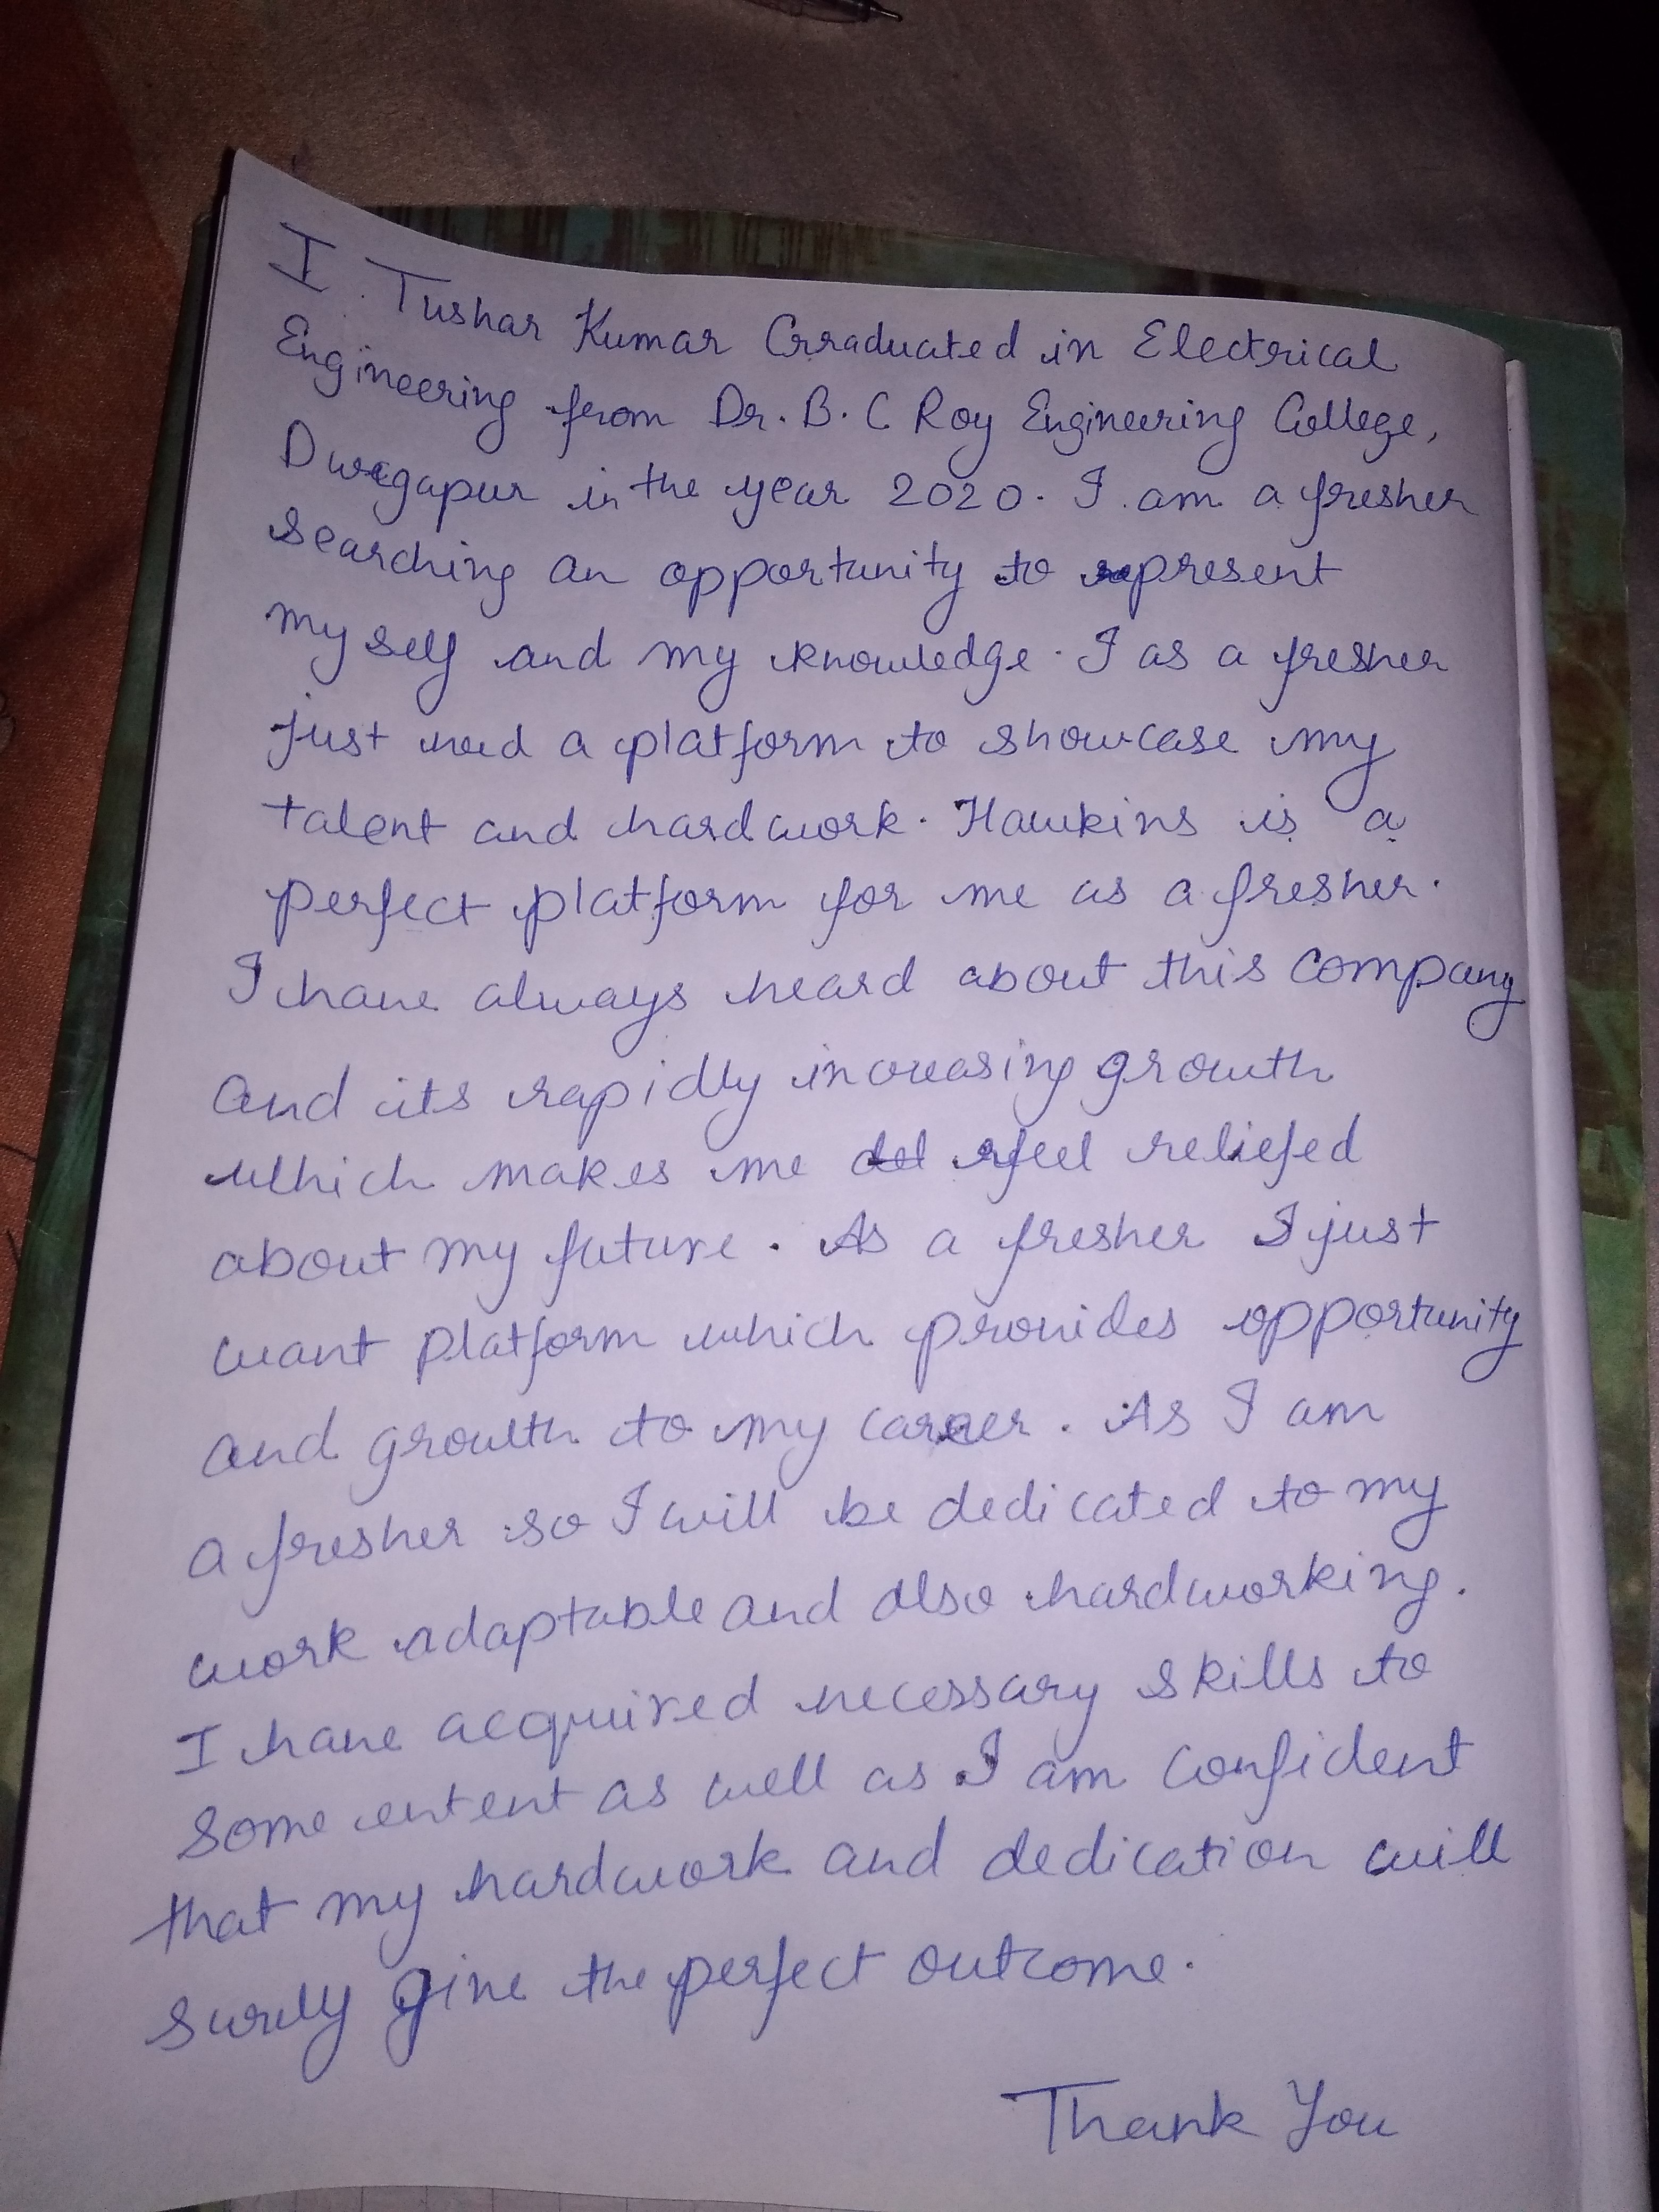 I Tushar Kumar Graduated in Electrical
Engineering from Dr. B. C Roy Engineering College,
Durgapur in the year 2020. I am a fresher
searching an opportunity to represent
myself and my knowledge. I as a fresher
just need a platform to showcase my
talent and hardwork. Hawkins is a
perfect platform for me as a fresher.
I have always heard about this company
and its rapidly increasing growth
which makes me feel reliefed
about my future. As a fresher I just
want platform which provides opportunity
and growth to my career. As I am
a fresher so I will be dedicated to my
work adaptable and also hardworking.
I have acquired necessary skills to
some extent as well as I am confident
that my hardwork and dedication will
surely give the perfect outcome.
Thank You